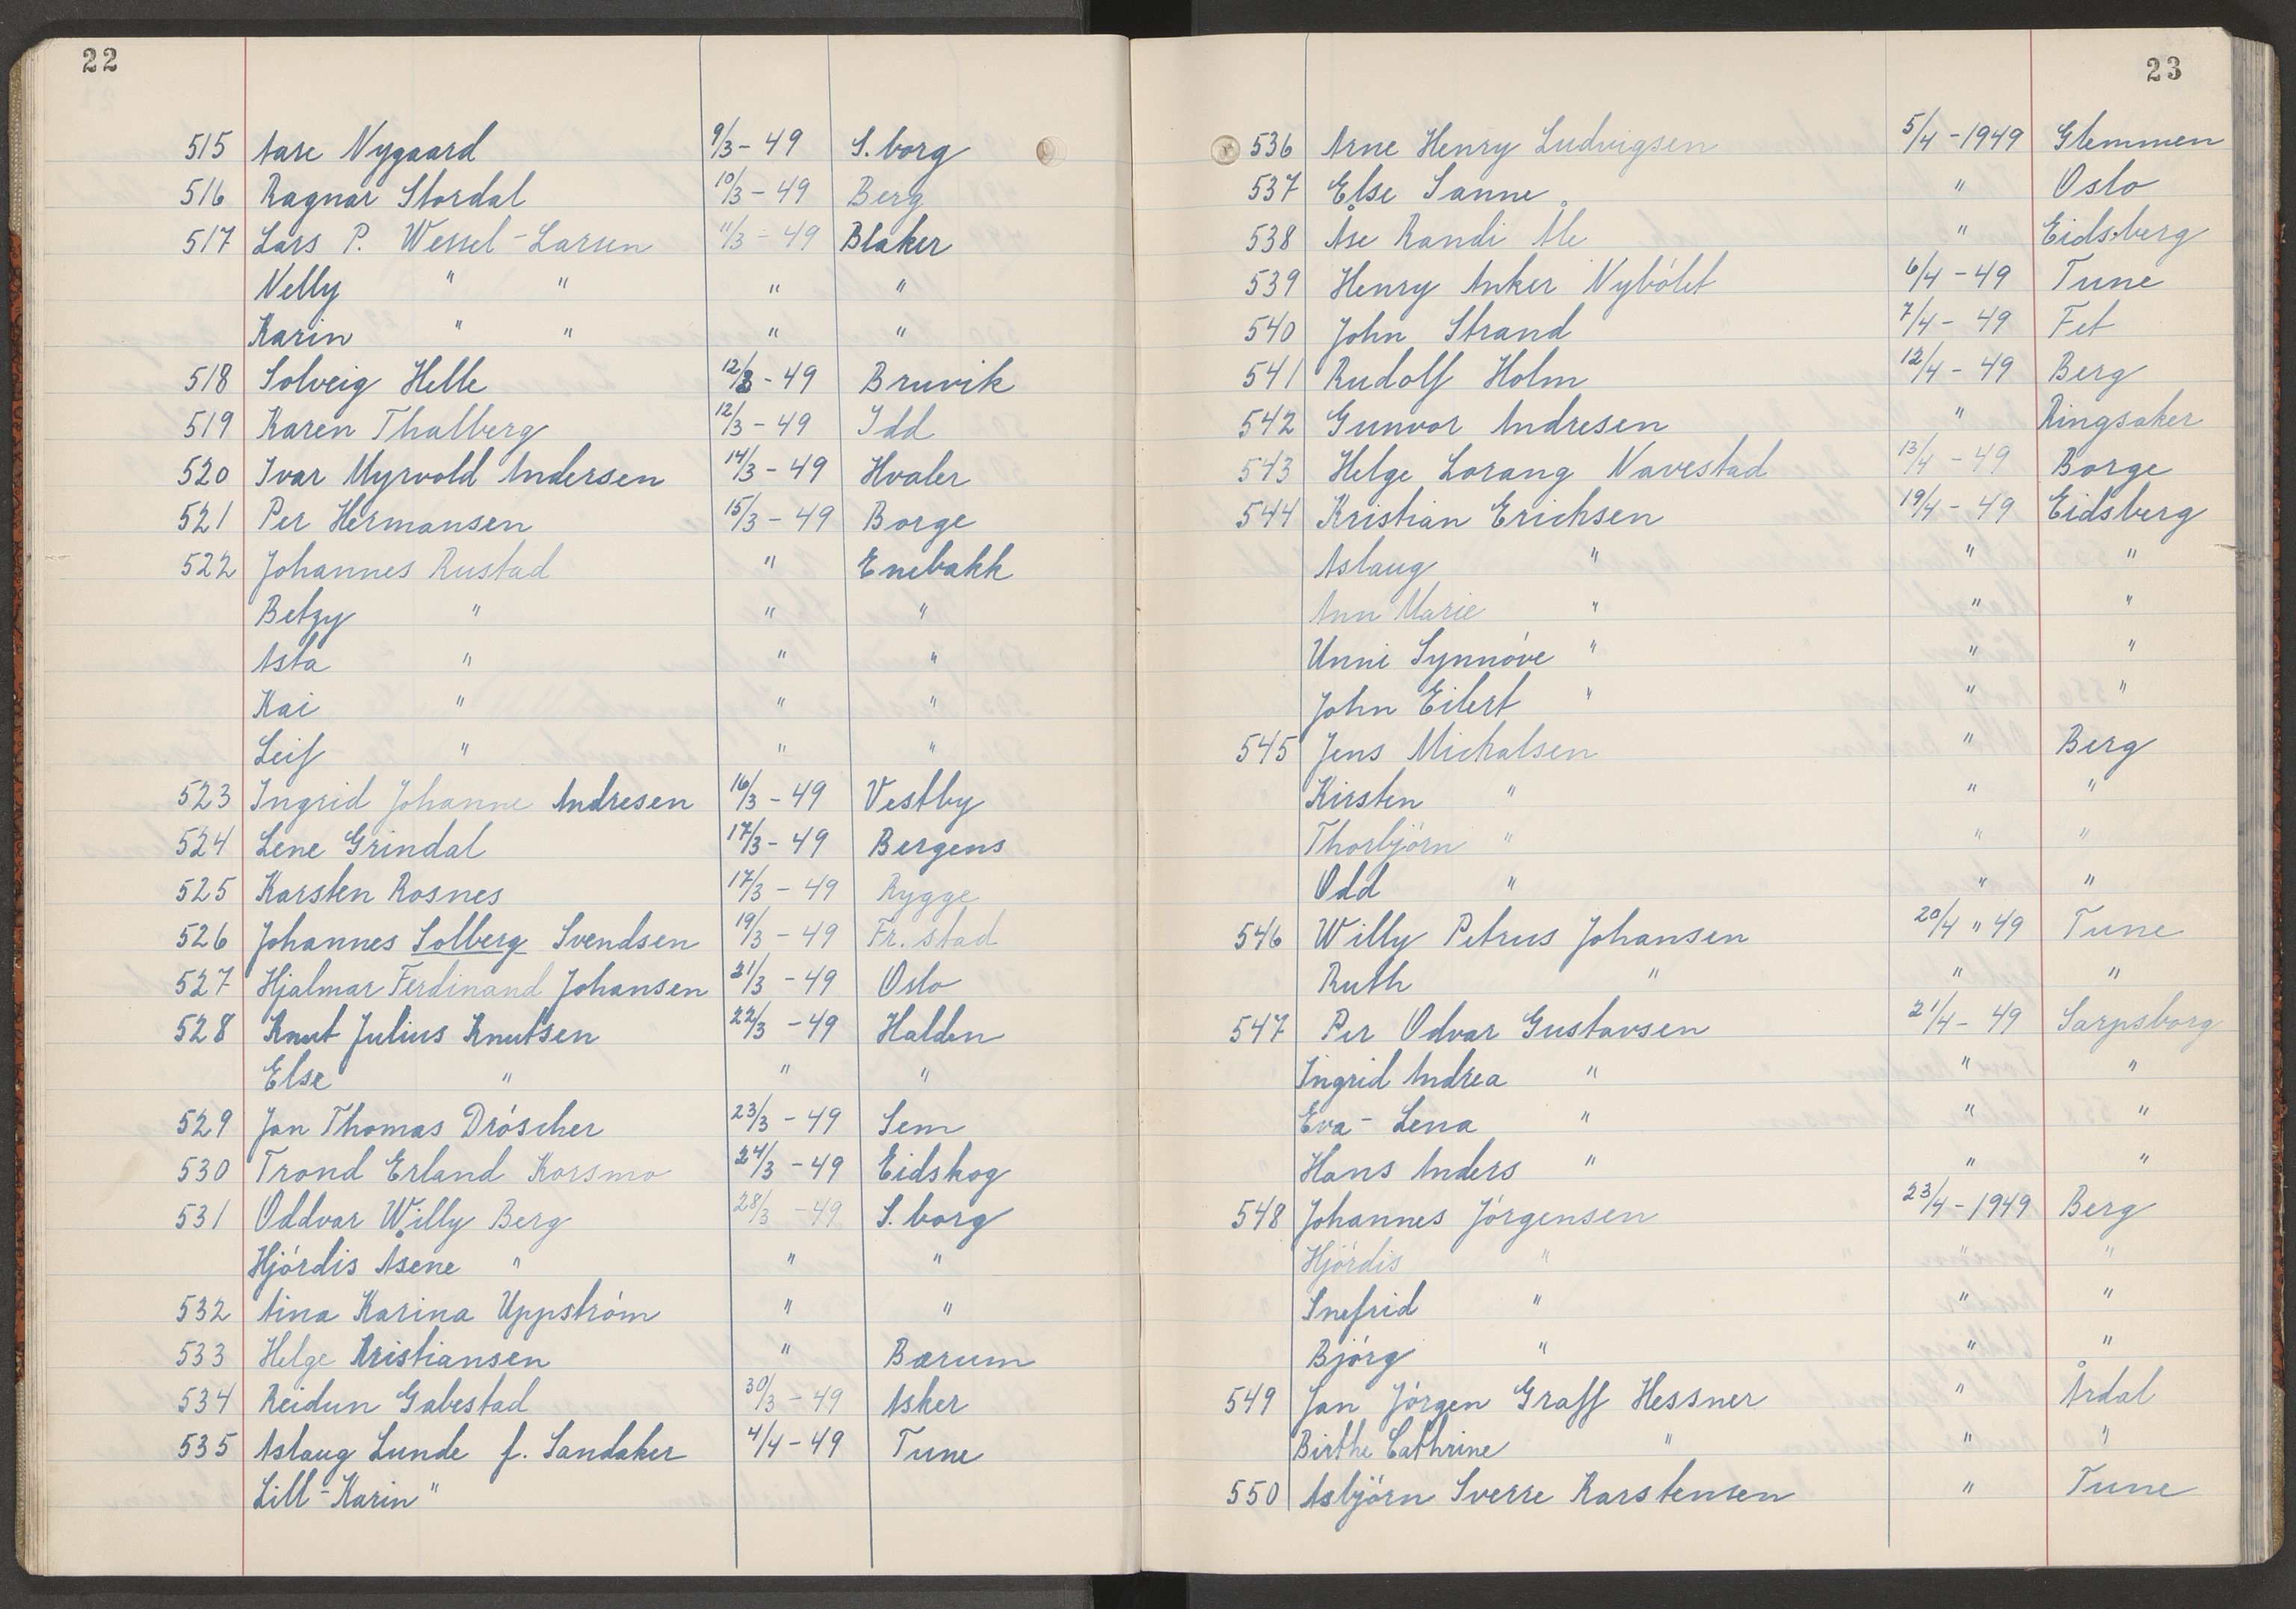 22
515 Aase Nygaard 9/3 - 49 S.borg
516 Ragnar Stordal 10/3 - 49 Berg
517 Lars P. Wessel-Larsen 11/3 - 49 Blaker
Nelly " " " "
Karin " " " "
518 Solveig Helle 12/3 - 49 Bruvik
519 Karen Thalberg 12/3 - 49 Idd
520 Ivar Myrvold Andersen 14/3 - 49 Hvaler
521 Per Hermansen 15/3 - 49 Borge
522 Johannes Rustad " Enebakk
Betzy " " "
Asta " " "
Kai " " "
Leif " " "
523 Ingrid Johanne Andresen 16/3 - 49 Vestby
524 Lene Grindal 17/3 - 49 Bergens
525 Karsten Rosnes 17/3 - 49 Rygge
526 Johannes Solberg Svendsen 19/3 - 49 Fr.stad
527 Hjalmar Ferdinand Johansen 21/3 - 49 Oslo
528 Knut Julius Knutsen 22/3 - 49 Halden
Else " " "
529 Jan Thomas Dröscher 23/3 - 49 Sem
530 Trond Erland Korsmo 24/3 - 49 Eidskog
531 Oddvar Willy Berg 28/3 - 49 S.borg
Hjördis Åsene " " "
532 Aina Karina Uppström " "
533 Helge Kristiansen " Bærum
534 Reidun Gabestad 30/3 - 49 Asker
535 Aslaug Lunde f. Sandaker 4/4 - 49 Tune
Lill-Karin "
23
536 Arne Henry Ludvigsen 5/4 - 1949 Glemmen
537 Else Sanne " Oslo
538 Åse Randi Åle " Eidsberg
539 Henry Anker Nybölet 6/4 - 49 Tune
540 John Strand 7/4 - 49 Fet
541 Rudolf Holm 12/4 - 49 Berg
542 Gunvor Andresen " Ringsaker
543 Helge Lorang Navestad 13/4 - 49 Borge
544 Kristian Erichsen 19/4 - 49 Eidsberg
Aslaug " " "
Ann Marie " " "
Unni Synnöve " " "
John Eilert " " "
545 Jens Michalsen " Berg
Kirsten " " "
Thorbjörn " " "
Odd " " "
546 Willy Petrus Johansen 20/4 " 49 Tune
Ruth " " "
547 Per Odvar Gustavsen 21/4 - 49 Sarpsborg
Ingrid Andrea " " "
Eva-Lena " " "
Hans Anders " " "
548 Johannes Jörgensen 23/4 - 1949 Berg
Hjördis " " "
Snefrid " " "
Björg " " "
549 Jan Jörgen Graff Hessner " Årdal
Birthe Cathrine " " "
550 Asbjörn Sverre Karstensen " Tune